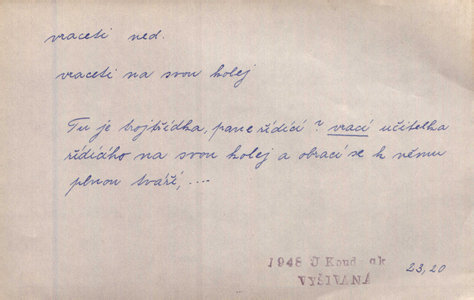 vraceti ned.
vraceti na svou kolej
Tu je trojtřídka, pane řídící? vrací učitelka
řídícího na svou kolej a obrací se k němu
plnou tváří, ....
1948 J Koudelák
VYŠÍVANÁ
23,20